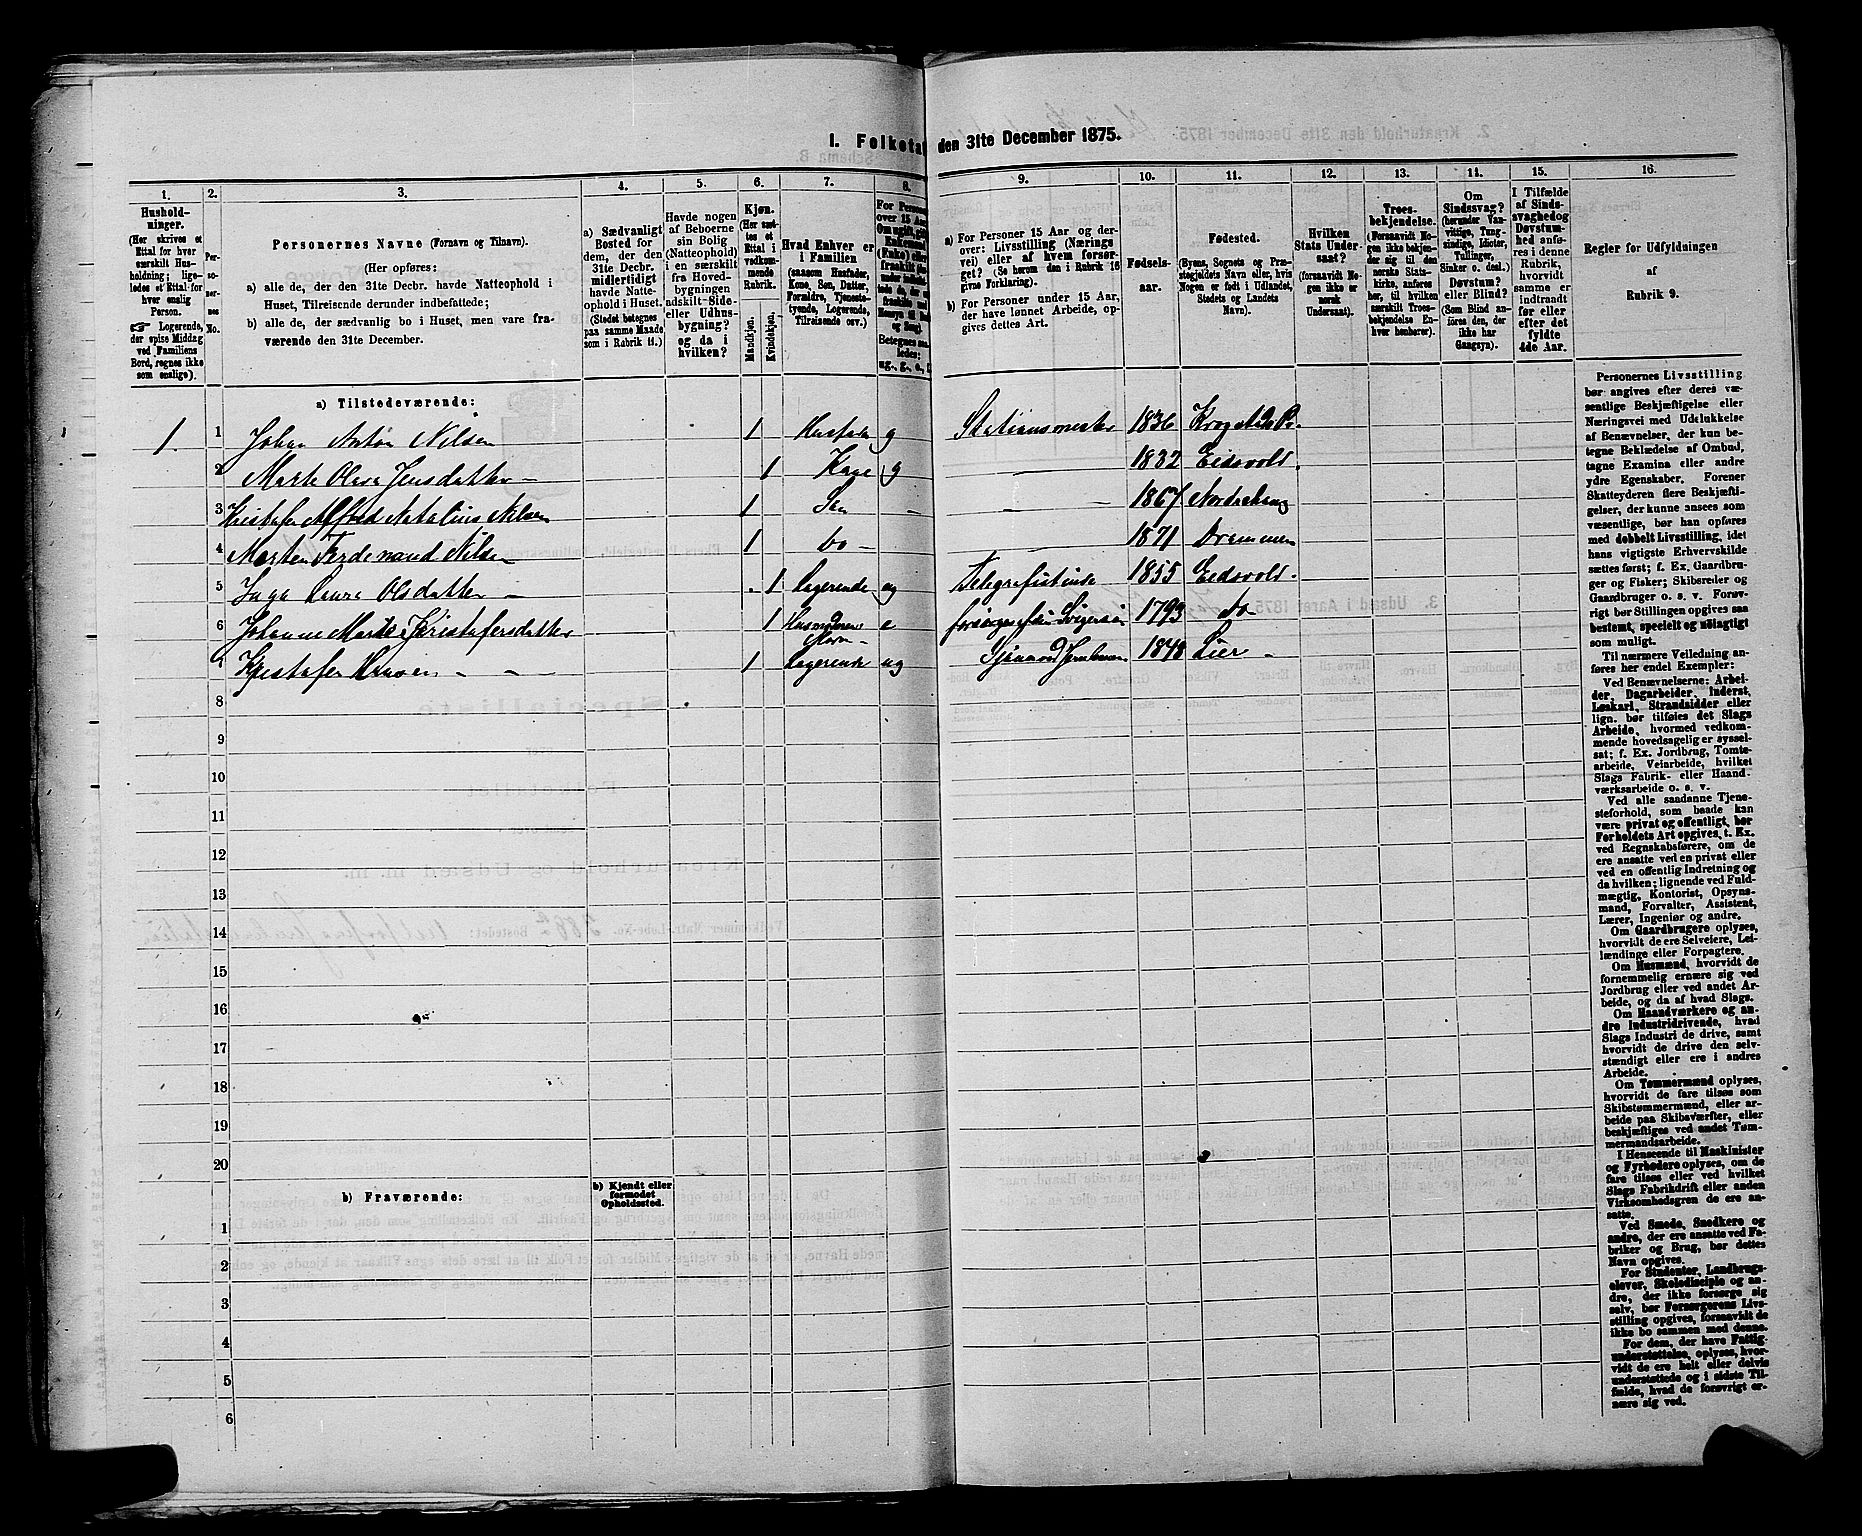 I. Folketa den 31te December 1875.
1. 2. 3. 4. 5. 6. 7. 8. 9. 10. 11. 12. 13. 14. 15. 16.
Hushold-
ninger.
(Her skrives et
Ettal for hver
særskilt Hus-
holdning; lige-
ledes et Ettal for
hver enslig
Person.
☞ Logerende,
der spise Middag
ved Familiens
Bord, regnes ikke
som enslige).
Per-
so-
ner-
nes
No.
Personernes Navne (Fornavn og Tilnavn).
(Her opføres:
a) alle de, der den 31te Decbr. havde Natteophold i
Huset, Tilreisende derunder indbefattede;
b) alle de, der sædvanlig bo i Huset, men vare fra-
værende den 31te December.
a) Sædvanligt
Bosted for
dem, der den
31te Decbr.
midlertidigt
havde Natte-
ophold i Huset.
(Stedet betegnes
paa samme Maade
som i Rubrik 11.)
Havde nogen
af Beboerne
sin Bolig
(Natteophold)
i en særskilt
fra Hoved-
bygningen
adskilt Side-
eller Udhus-
bygning?
og da i
hvilken?
Kjøn.
(Her sæt-
tes et
Ettal i
vedkom-
mende
Rubrik.
Mandkjøn.
Kvindekjøn.
Hvad Enhver er
i Familien
(saasom Husfader,
Kone, Søn, Datter,
Forældre, Tjeneste-
tyende, Logerende,
Tilreisende osv.)
For Person
over 15 Aar
Om ugift, gift
Enkemand
(Enke) eller
fraskilt
Betegnes saa-
ledes:
ug., g., e., f.
a) For Personer 15 Aar og der-
over: Livsstilling (Nærings
vei) eller af hvem forsør-
get? (Se herom den i Rubrik 16
givne Forklaring).
b) For Personer under 15 Aar,
der have lønnet Arbeide, op-
gives dettes Art.
Fødsels-
aar.
Fødested.
(Byens, Sognets og Præ-
stegjeldets Navn eller, hvis
Nogen er født i Udlandet,
Stedets og Landets
Navn).
Hvilken
Stats Under-
saat?
(forsaavidt No-
gen ikke er
norsk
Undersaat).
Troes-
bekjendelse.
(Forsaavidt No-
gen ikke bekjen-
der sig til den
norske Stats-
kirke, anføres
her, til hvilken
særskilt Troes-
bekjendelse En-
hver henhører).
Om
Sindssvag?
(herunder Van-
vittige, Tung-
sindige, Idioter,
Tullinger,
Sinker o. desl.)
Døvstum?
eller Blind?
(Som Blind an-
føres den, der
ikke har
Gangsyn).
I Tilfælde
af Sinds-
svaghed og
Døvstum-
hed anfø-
res i denne
Rubrik,
hvorvidt
samme er
indtraadt
før eller
efter det
fyldte
4de Aar.
Regler for Udfyldningen
af
Rubrik 9.
a) Tilstedeværende:
1 1 Johan Anton Nilsen 1 Husfader g Stationsmester 1836 Krogstads P.
2 Marte Olava Jensdatter 1 Kone g 1832 Eidsvold.
3 Kristofer Alfred Natalius Nilsen 1 Søn 1867 Norderhoug
4 Marten Ferdinand Nilsen 1 do 1871 Drammen
5 Inga Laura Olsdatter 1 Logerende ug Telegrafistinde 1855 Eidsvold.
6 Johanne Marte Kristofersdatter 1 Husmoderens Mor e forsørges af sin Svigersøn 1793 do
7 Kristofer Hansen 1 Logerende ug 1848 Lier
8
9
10
11
12
13
14
15
16
17
18
19
20
b) Fraværende:
b) Kjendt eller
formodet
Opholdssted.
1
2
3
4
5
6
Personernes Livsstilling
bør angives efter deres væ-
sentlige Beskjæftigelse eller
Næringsvei med Udelukkelse
af Benævnelser, der kun be-
tegne Beklædelse af Ombud,
tagne Examina eller andre
ydre Egenskaber. Forener
Skatteyderen flere Beskjæfti-
gelser, der kunne ansees som
væsentlige, bør han opføres
med dobbelt Livsstilling, idet
hans vigtigste Erhvervskilde
sættes først; f. Ex. Gaardbru-
ger og Fisker; Skibsreder og
Gaardbruger o. s. v. Forøv-
rigt bør Stillingen opgives saa
bestemt, specielt og nøiagtigt
som muligt.
Til nærmere Veiledning an-
føres her endel Exempler:
Ved Benævnelserne: Arbei-
der, Dagarbeider, Inderst,
Løskarl, Strandsidder eller
lign. bør tilføies det Slags
Arbeide, hvormed vedkom-
mende hovedsagelig er syssel-
sat; f. Ex. Jordbrug, Tomte-
arbeide, Veiarbeide, hvilket
Slags Fabrik- eller Haand-
værksarbeide o. s. v.
Ved alle saadanne Tjene-
steforhold, som baade kan
være privat og offentligt, bør
Forholdets Art opgives, t. Ex.
ved Regnskabsførere, om de
ere ansatte ved en privat eller
ved en offentlig Indretning og
da hvilken; lignende ved Fuld-
mægtig, Kontorist, Opsyns-
mand, Forvalter, Assistent,
Lærer, Ingeniør og andre.
Om Gaardbrugere oplyses,
hvorvidt de ere Selveiere, Lei-
lændinge eller Forpagtere.
Om Husmænd, hvorvidt de
fornemmelig ernære sig ved
Jordbrug eller ved andet Ar-
beide, og da af hvad Slags.
Om Haandværkere og an-
dre Industridrivende, hvad
Slags Industri de drive, samt
hvorvidt de drive den selv-
stændigt eller ere i andres
Arbeide.
Om Tømmermænd oplyses,
hvorvidt de fare tilsøs som
Skibstømmermænd, eller ar-
beide paa Skibsværfter, eller
beskjæftiges ved andet Tøm-
mermandsarbeide.
I Henseende til Maskinister
og Fyrbødere oplyses, om de
fare tilsøs eller ved hvilket
Slags Fabrikdrift eller anden
Virksomhedsgren de ere an-
satte.
Ved Smede, Snedkere og
andre, der ere ansatte ved Fa-
briker og Brug, bør dettes
Navn opgives.
For Studenter, Landbrugs-
elever, Skoledisciple og an-
dre, der ikke forsørge sig
selv, bør Forsørgerens Livs-
stilling opgives, forsaavidt de
ikke bo sammen med denne.
For dem, der have Fattig-
understøttelse, oplyses, hvor-
vidt de ere helt eller delvis
understøttede og i sidste Til-
fælde, hvad de forøvrigt er-
nære sig ved.